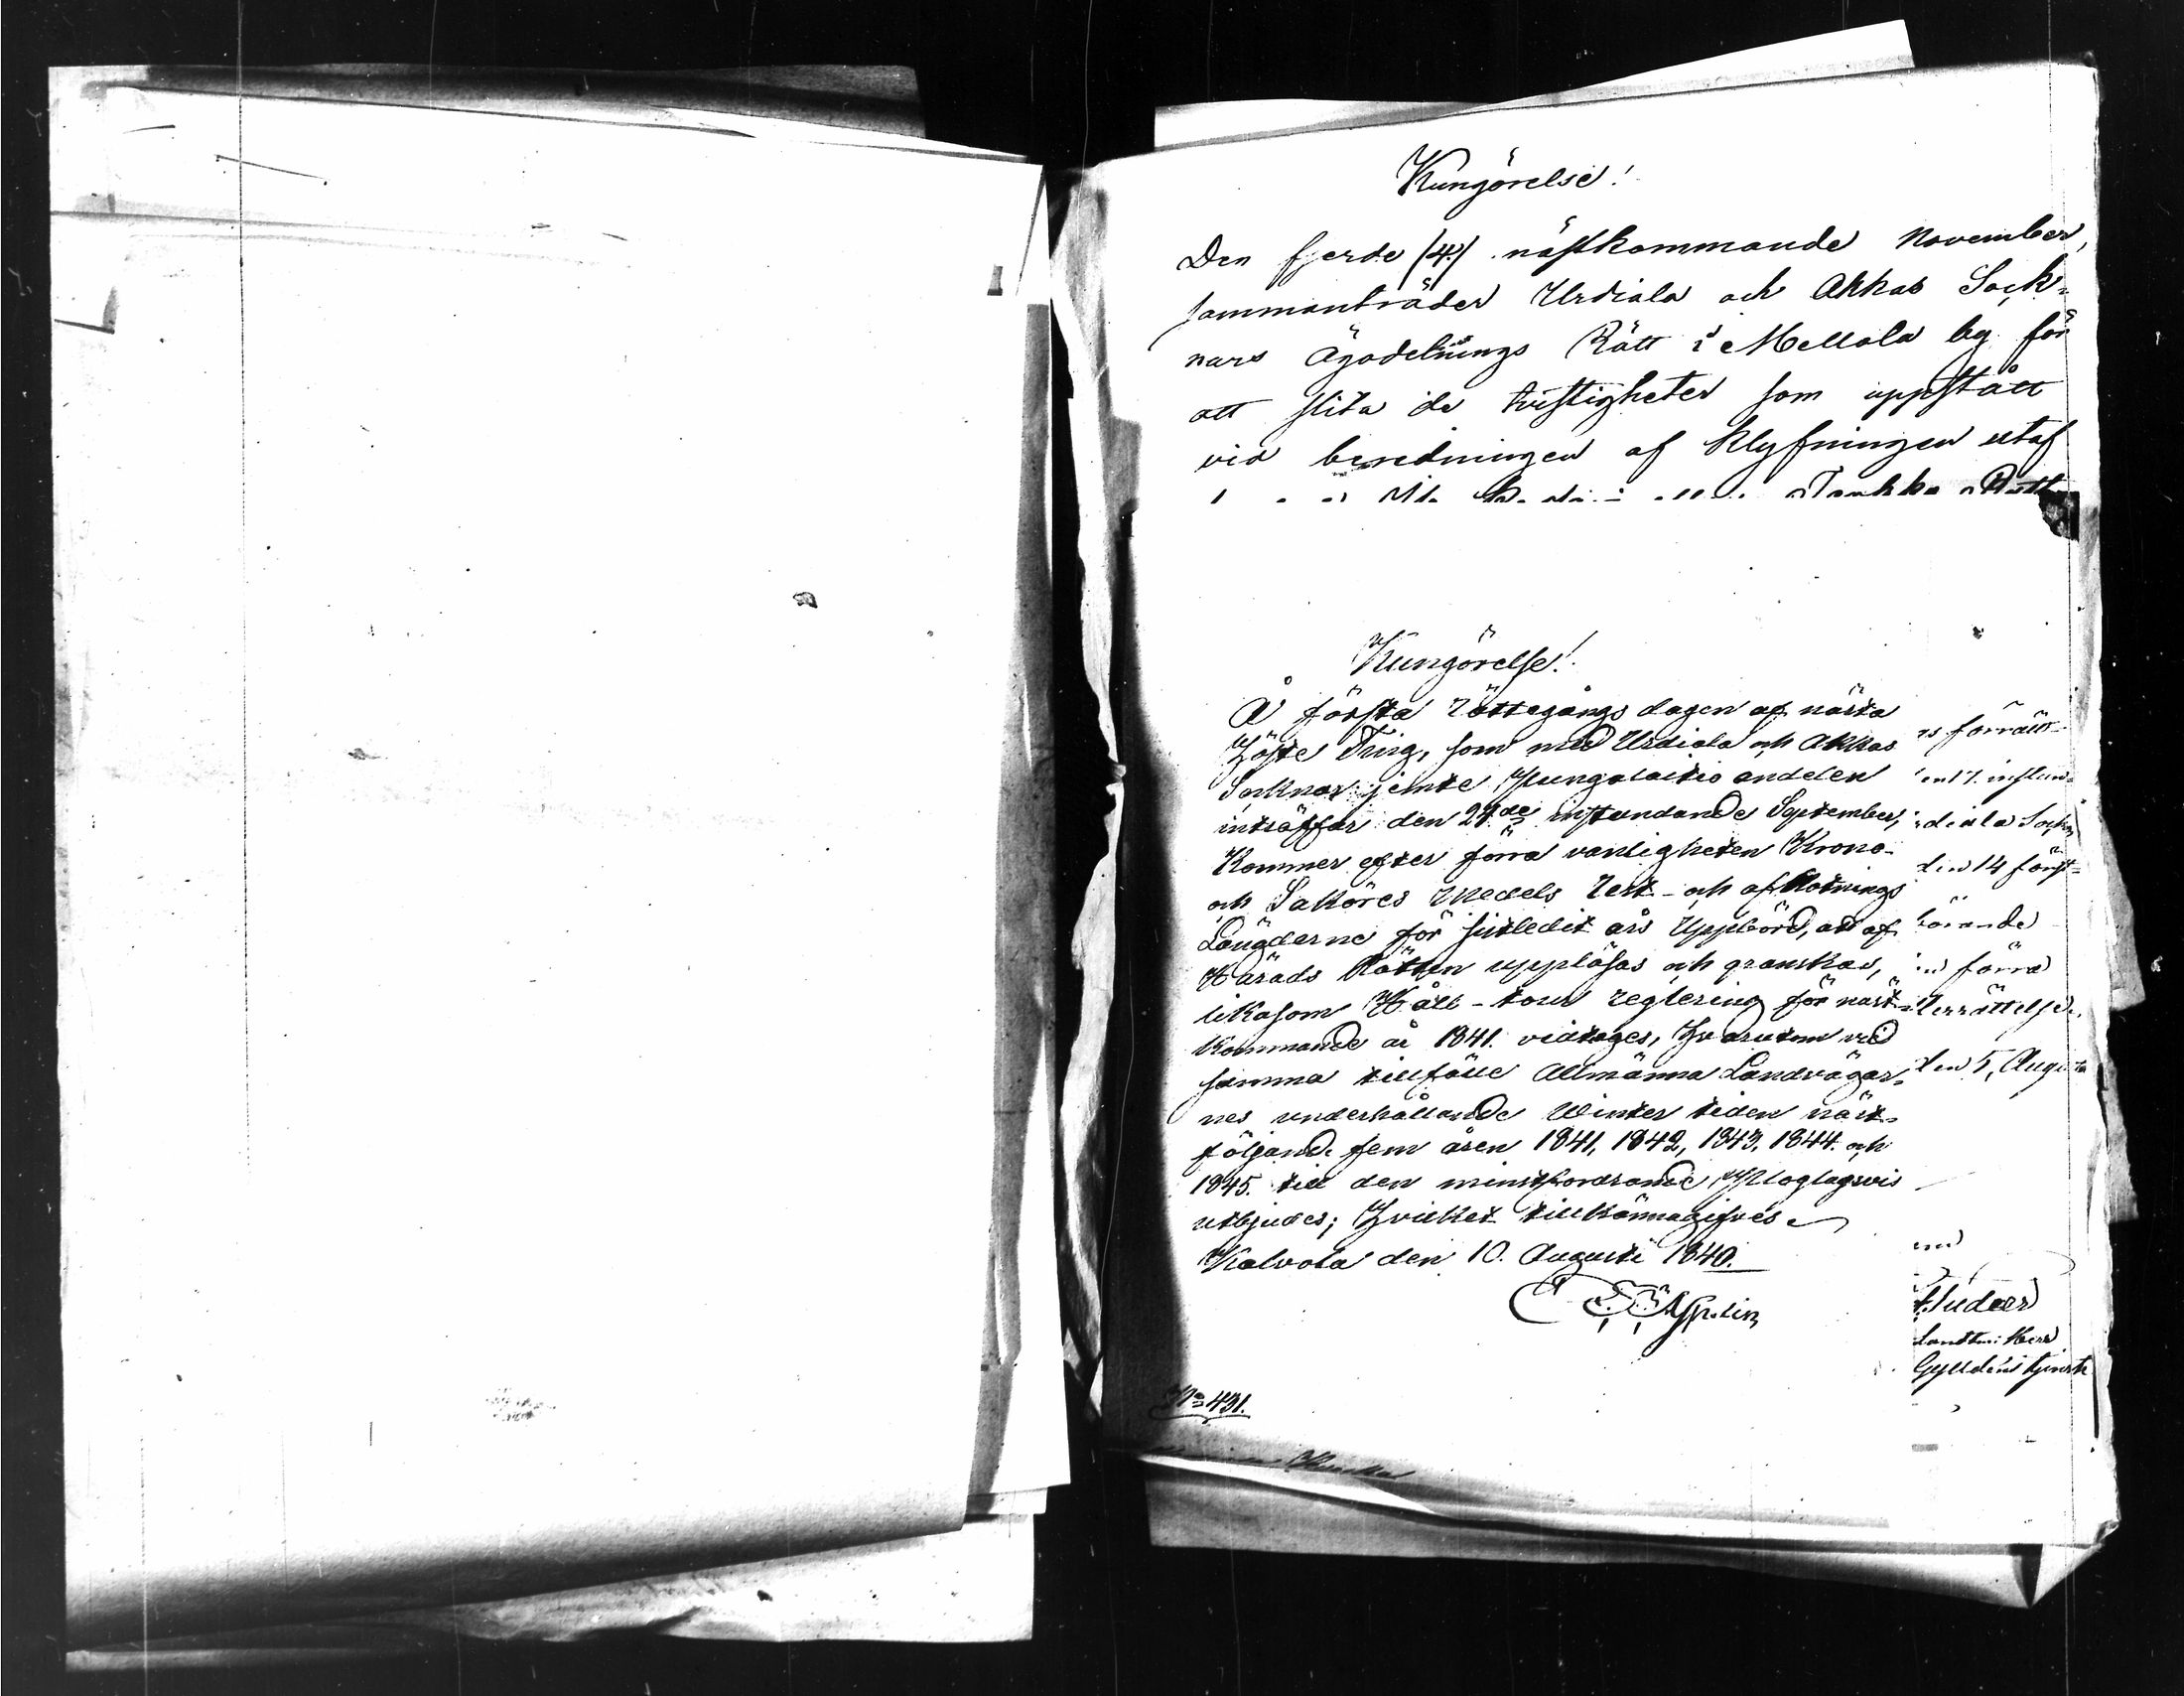 Kungörelse!
Den fjerde /4./ nästkommande November,
sammanträder Urdiala och Akkas Sock-
nars Ägodelnings Rätt i Mellola by för
att slita de tvistigheter som uppstått
vid beredningen af klyfningen utaf
Kungörelse!
Å första rättegångs dagen af nästa
Höste Ting, som med Urdiala och Akkas
Socknar jemte Hungalaitio andelen
inträffar den 24de instundande September,
Kommer efter förra vanligheten Krono-
och Saköres Medels Rest- och afkortnings
Längderne för sistledit års Uppbörd, att af
Härads Rätten uppläsas och granskas,
likasom Håll-tour reglering för näst-
kommande år 1841. vidtages, hvarutom vid
samma tillfälle Allmänna Landvägar-
nes underhållande Winter tiden näst-
följande fem åren 1841, 1842, 1843, 1844. och
1845. till den minstfordrande Ploglagsvis
utbjudes; hvilket tillkännagifves
Kalvola den 10. Augusti 1840.
No 431.
förrätt-
en 17. instun-
rdiala Sockn
den 14 först-
hörande
förra
terrättelse.
den 5, Augusti
Landtm: Herr
Gylldéns tjenste